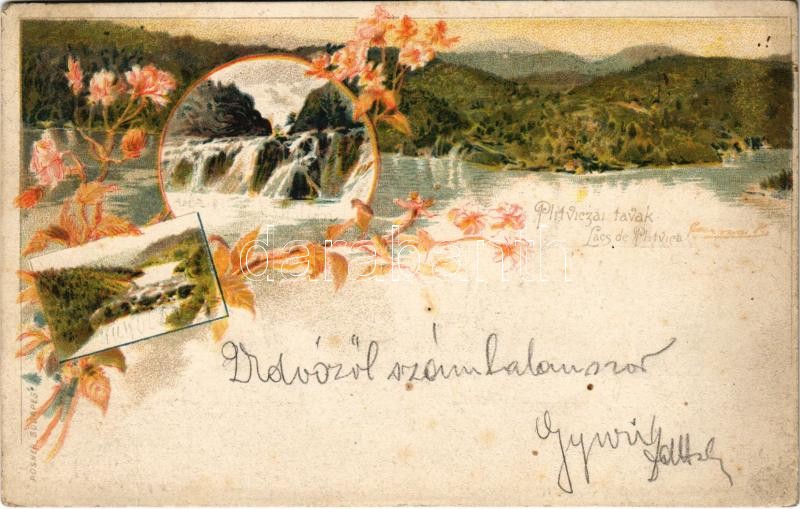 Plitviczai tavak
Lacs de Plitvica
darabanth
Üdvözöl számtalanszor
POSNER BUDAPEST